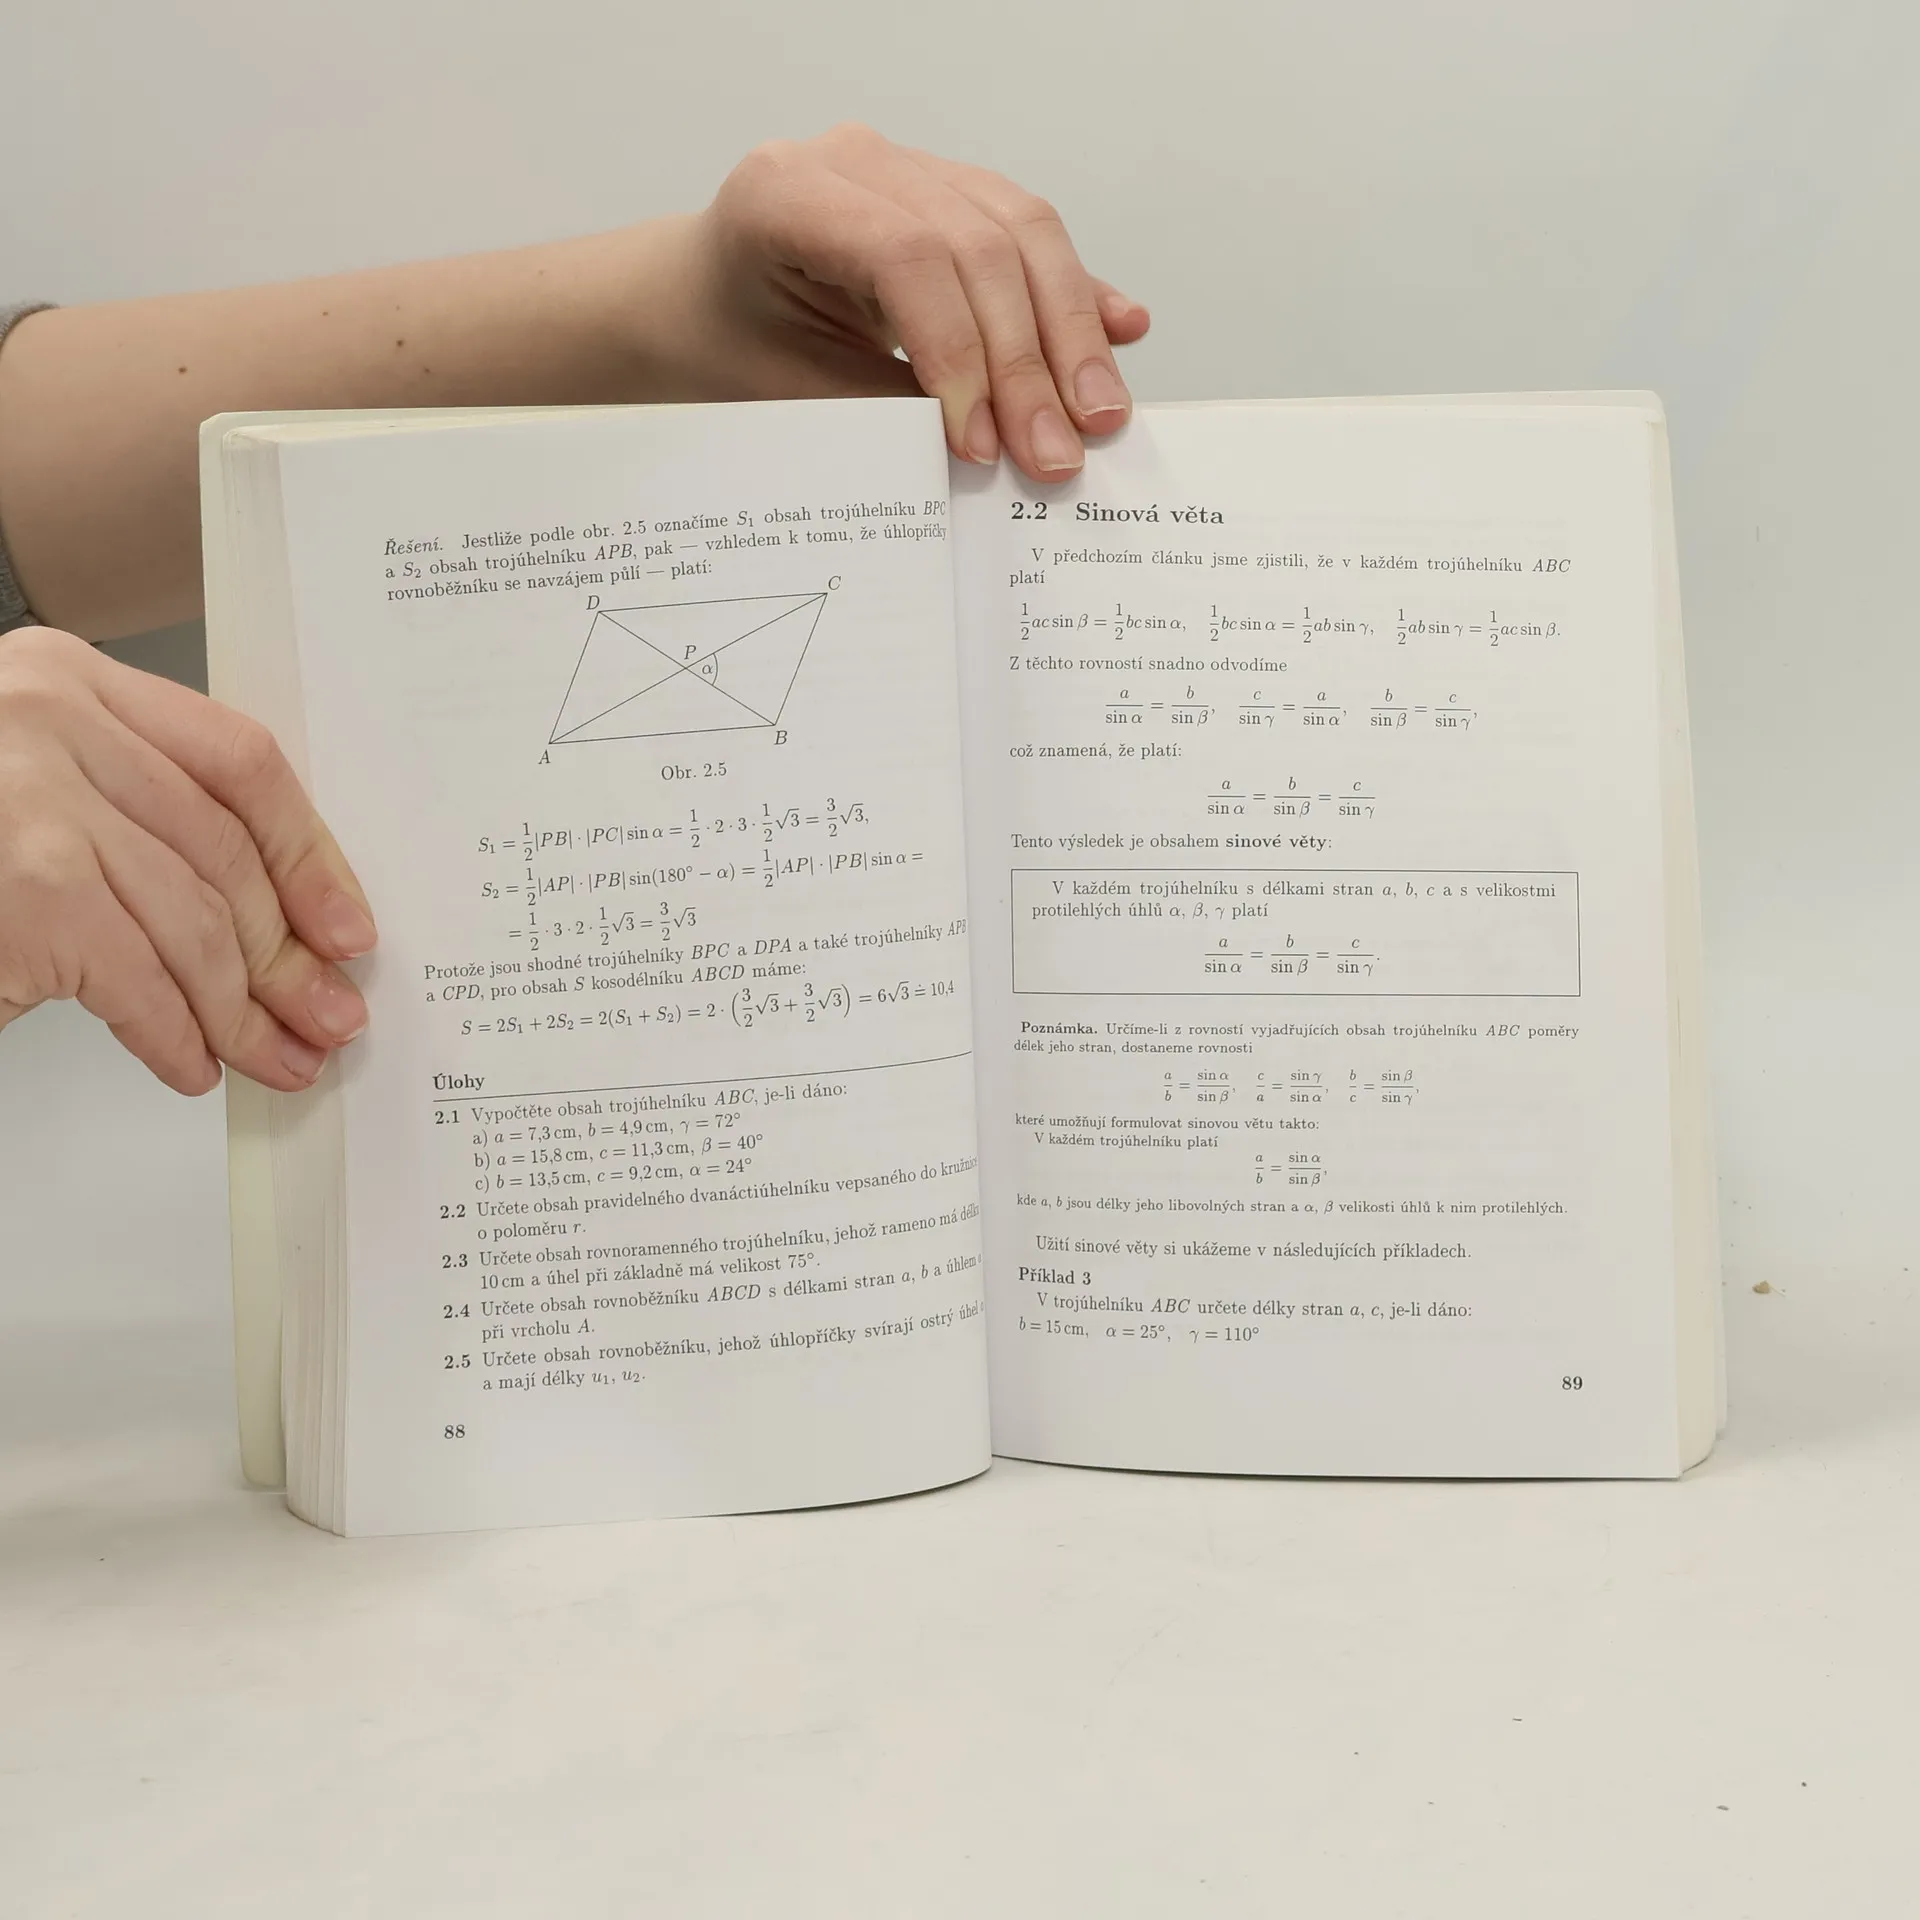 Řešení. Jestliže podle obr. 2.5 označíme S₁ obsah trojúhelníku BPC
a S₂ obsah trojúhelníku APB, pak — vzhledem k tomu, že úhlopříčky
rovnoběžníku se navzájem půlí — platí:
D
C
P
α
A
B
Obr. 2.5
S₁ = 1/2 |PB| · |PC| sin α = 1/2 · 2 · 3 · 1/2 √3 = 3/2 √3,
S₂ = 1/2 |AP| · |PB| sin(180° − α) = 1/2 |AP| · |PB| sin α =
= 1/2 · 3 · 2 · 1/2 √3 = 3/2 √3
Protože jsou shodné trojúhelníky BPC a DPA a také trojúhelníky APB
a CPD, pro obsah S kosodélníku ABCD máme:
S = 2S₁ + 2S₂ = 2(S₁ + S₂) = 2 · (3/2 √3 + 3/2 √3) = 6√3 ≐ 10,4
Úlohy
2.1 Vypočtěte obsah trojúhelníku ABC, je-li dáno:
a) a = 7,3 cm, b = 4,9 cm, γ = 72°
b) a = 15,8 cm, c = 11,3 cm, β = 40°
c) b = 13,5 cm, c = 9,2 cm, α = 24°
2.2 Určete obsah pravidelného dvanáctiúhelníku vepsaného do kružnice
o poloměru r.
2.3 Určete obsah rovnoramenného trojúhelníku, jehož rameno má délku
10 cm a úhel při základně má velikost 75°.
2.4 Určete obsah rovnoběžníku ABCD s délkami stran a, b a úhlem
při vrcholu A.
2.5 Určete obsah rovnoběžníku, jehož úhlopříčky svírají ostrý úhel
a mají délky u₁, u₂.
88
2.2 Sinová věta
V předchozím článku jsme zjistili, že v každém trojúhelníku ABC
platí
1/2 ac sin β = 1/2 bc sin α, 1/2 bc sin α = 1/2 ab sin γ, 1/2 ab sin γ = 1/2 ac sin β.
Z těchto rovností snadno odvodíme
a/sin α = b/sin β, c/sin γ = a/sin α, b/sin β = c/sin γ,
což znamená, že platí:
a/sin α = b/sin β = c/sin γ
Tento výsledek je obsahem sinové věty:
V každém trojúhelníku s délkami stran a, b, c a s velikostmi
protilehlých úhlů α, β, γ platí
a/sin α = b/sin β = c/sin γ.
Poznámka. Určíme-li z rovností vyjadřujících obsah trojúhelníku ABC poměry
délek jeho stran, dostaneme rovnosti
a/b = sin α/sin β, c/a = sin γ/sin α, b/c = sin β/sin γ,
které umožňují formulovat sinovou větu takto:
V každém trojúhelníku platí
a/b = sin α/sin β,
kde a, b jsou délky jeho libovolných stran a α, β velikosti úhlů k nim protilehlých.
Užití sinové věty si ukážeme v následujících příkladech.
Příklad 3
V trojúhelníku ABC určete délky stran a, c, je-li dáno:
b = 15 cm, α = 25°, γ = 110°
89